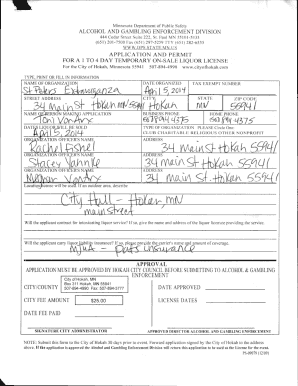 Minnesota Department of Public Safety
ALCOHOL AND GAMBLING ENFORCEMENT DIVISION
444 Cedar Street Suite 222, St. Paul MN 55101-5133
(651) 201-7500 Fax (651) 297-5259 TTY (651) 282-6555
WWW.DPS.STATE.MN.US
APPLICATION AND PERMIT
FOR A 1 TO 4 DAY TEMPORARY ON-SALE LIQUOR LICENSE
For the City of Hokah, Minnesota 55941 507-894-4990 www.cityofhokah.com
TYPE, PRINT OR FILL IN INFORMATION
NAME OF ORGANIZATION DATE ORGANIZED TAX EXEMPT NUMBER
St Peters Extravaganza April 5, 2014
STREET ADDRESS CITY STATE ZIP CODE
34 main St Hokah MN 55941 Hokah MN 55941
NAME OF PERSON MAKING APPLICATION BUSINESS PHONE HOME PHONE
Toni VonArx 507 894 4375 507 894 4375
DATES LIQUOR WILL BE SOLD TYPE OF ORGANIZATION Please Circle One:
April 5 2014 CLUB CHARITABLE RELIGIOUS OTHER NONPROFIT
ORGANIZATION OFFICER'S NAME ADDRESS
Rachel Fishel 34 main St Hokah 55941
ORGANIZATION OFFICER'S NAME ADDRESS
Stacey 34 main St Hokah 55941
ORGANIZATION OFFICER'S NAME ADDRESS
VonArx 34 main St. Hokah 55941
Location license will be used. If an outdoor area, describe
City Hall - Hokah, MN
main street
Will the applicant contract for intoxicating liquor service? If so, give the name and address of the liquor licensee providing the service.
Will the applicant carry liquor liability insurance? If so, please provide the carrier's name and amount of coverage.
insurance
APPROVAL
APPLICATION MUST BE APPROVED BY HOKAH CITY COUNCIL BEFORE SUBMITTING TO ALCOHOL & GAMBLING
ENFORCEMENT
City of Hokah, MN
Box 311 Hokah, MN 55941
507-894-4990 Fax 507-894-3777
CITY/COUNTY DATE APPROVED
CITY FEE AMOUNT $25.00 LICENSE DATES
DATE FEE PAID
SIGNATURE CITY ADMINISTRATOR APPROVED DIRECTOR ALCOHOL AND GAMBLING ENFORCEMENT
NOTE: Submit this form to the City of Hokah 30 days prior to event. Forward application signed by the City of Hokah to the address
above. If the application is approved the Alcohol and Gambling Enforcement Division will return this application to be used as the License for the event.